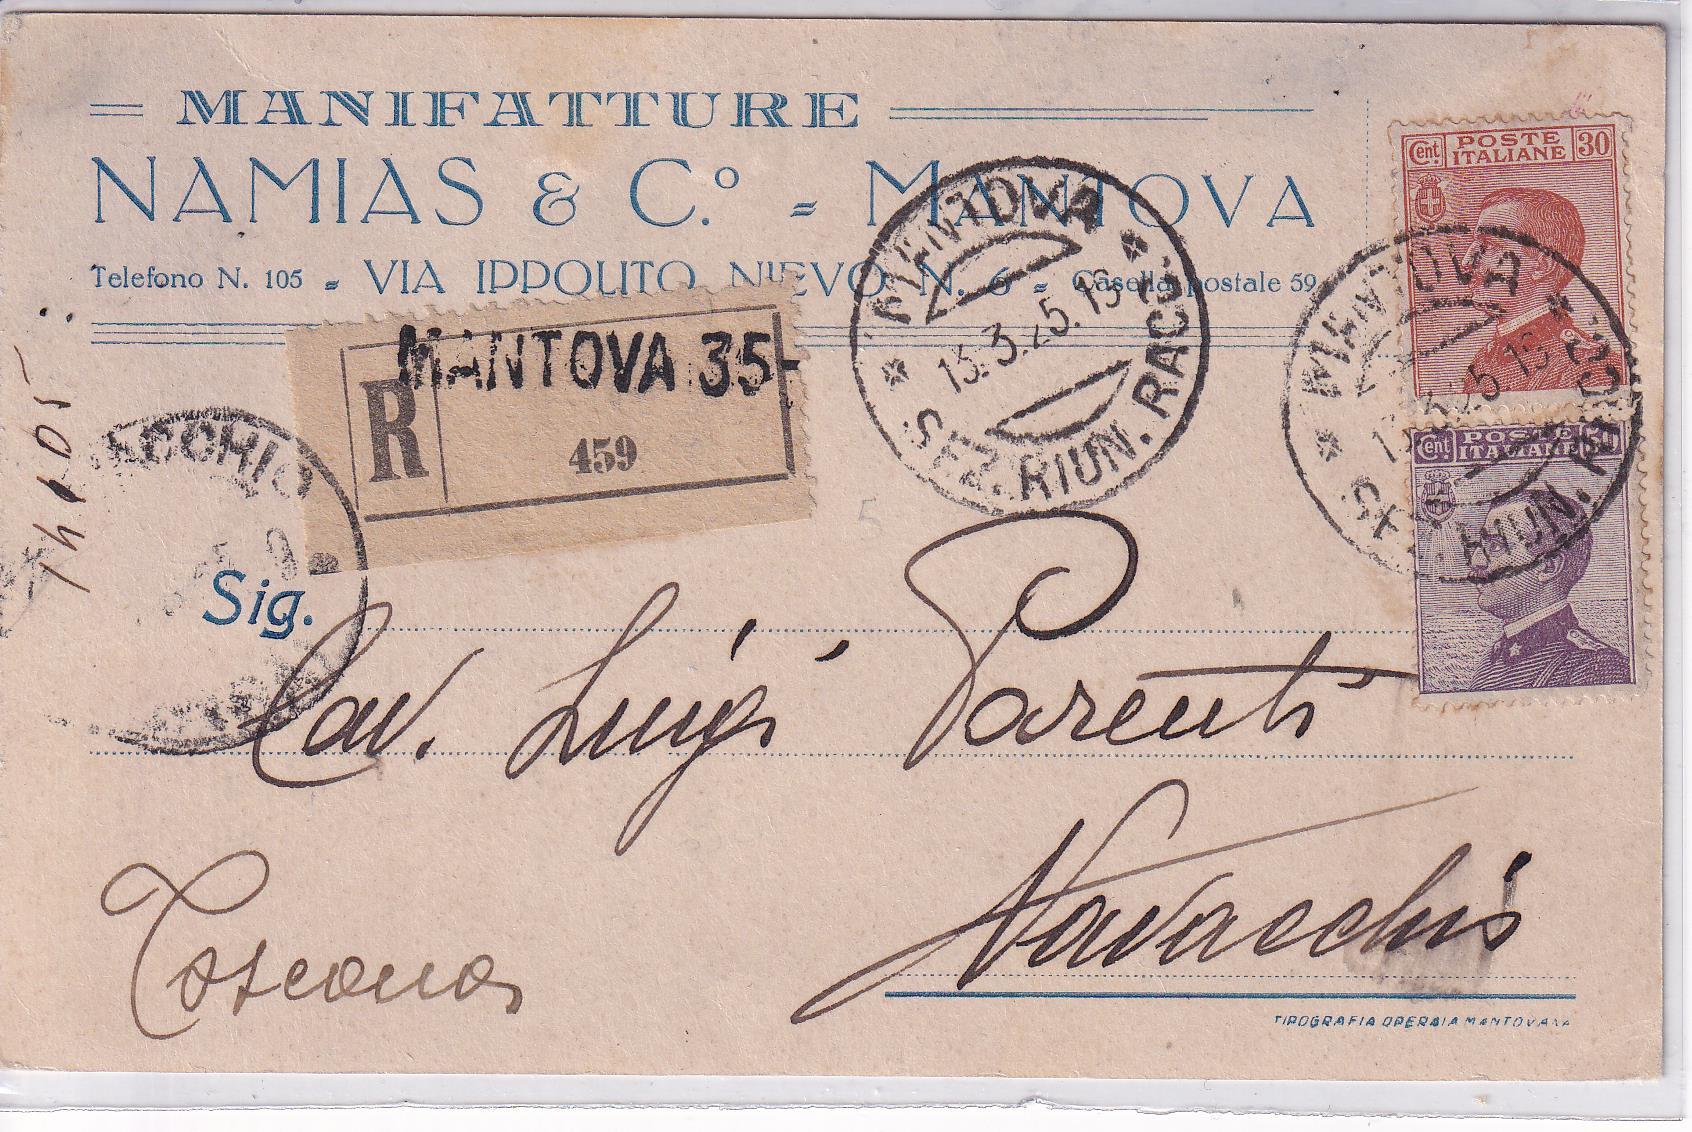 MANIFATTURE
NAMIAS & C.º - MANTOVA
Telefono N. 105 - VIA IPPOLITO NIEVO N. 6 - Casella postale 59
Cent. POSTE ITALIANE 30
Cent. POSTE ITALIANE 50
MANTOVA
SEZ. RIUN. RACC.
13.3.25.19
MANTOVA
R
MANTOVA 35-
459
ACCHIO
Sig.
Cav. Luigi Parenti
Navacchio
Toscana
TIPOGRAFIA OPERAIA MANTOVANA